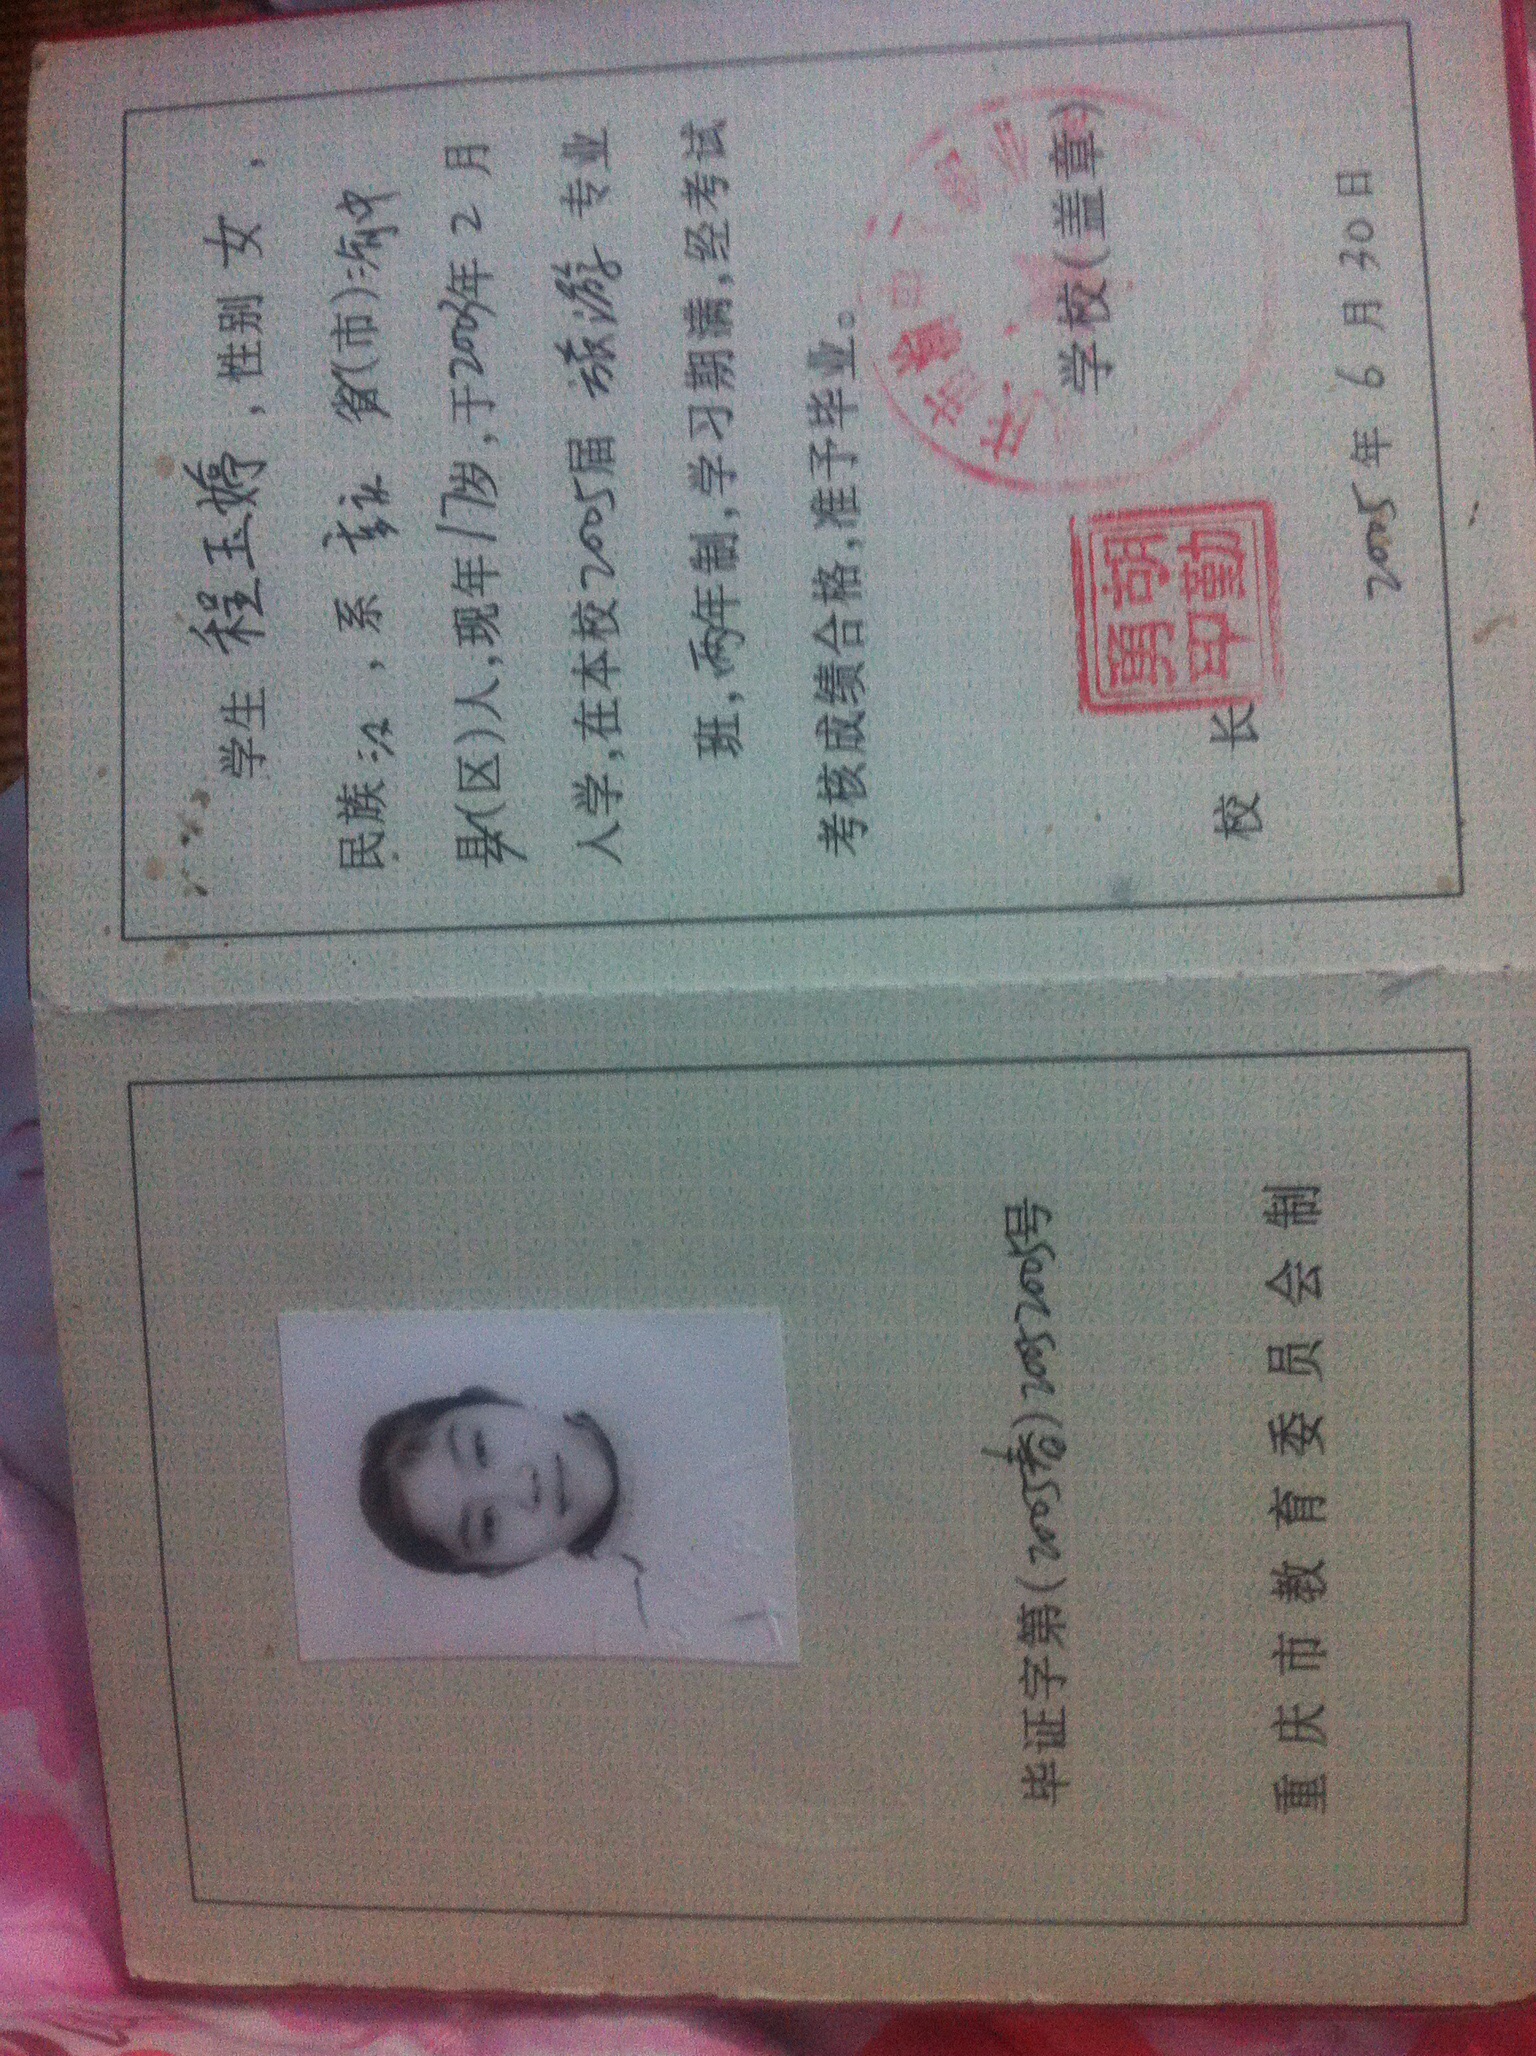 毕证字第(2005春)20052005号
重庆市教育委员会制
学生 程玉婷,性别 女,
民族 汉,系 重庆 省(市)渝中
县(区)人,现年17岁,于2003年2月
入学,在本校2005届 旅游 专业
班,两年制,学习期满,经考试
考核成绩合格,准予毕业。
学校(盖章)
校长
胡勇勤印
2005年6月30日